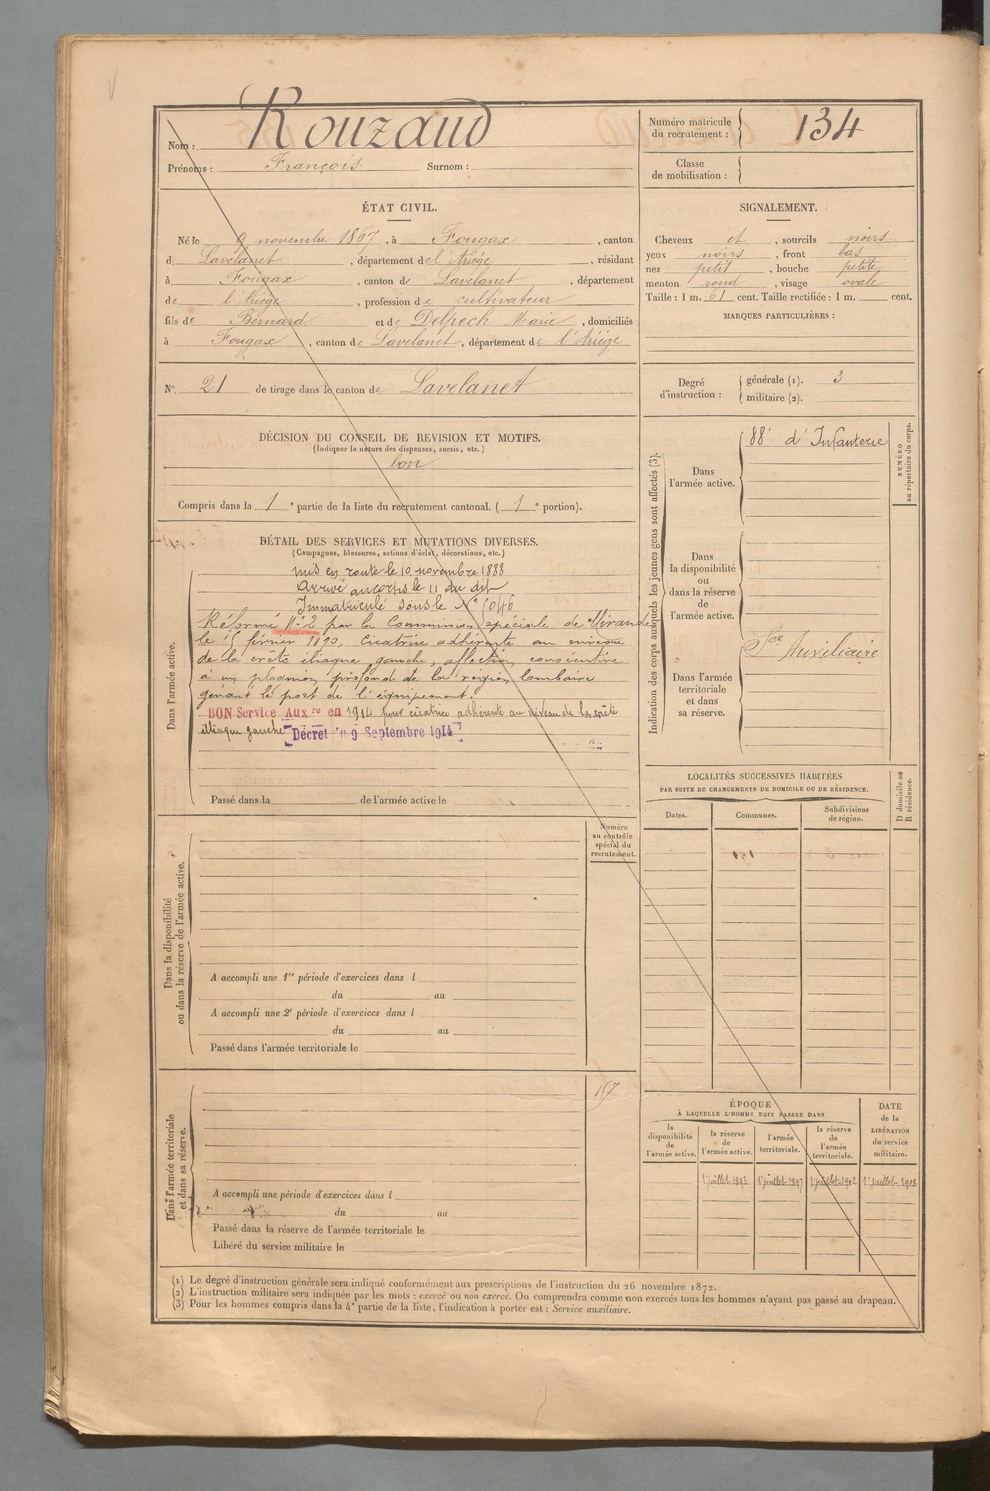 Nom : Rouzaud
Prénoms : François Surnom :
Numéro matricule du recrutement : 134
Classe de mobilisation :
ÉTAT CIVIL.
Né le 9 novembre 1867, à Fougax, canton
d Lavelanet, département de l'Ariège, résidant
à Fougax, canton de Lavelanet, département
de l'Ariège, profession de cultivateur
fils de Bernard et de Delpech Marie, domiciliés
à Fougax, canton de Lavelanet, département de l'Ariège
N° 21 de tirage dans le canton de Lavelanet
SIGNALEMENT.
Cheveux et, sourcils noirs
yeux noirs, front bas
nez petit, bouche petite
menton rond, visage ovale
Taille : 1 m. 61 cent. Taille rectifiée : 1 m. cent.
MARQUES PARTICULIÈRES :
Degré d'instruction : générale (1). 3
militaire (2).
DÉCISION DU CONSEIL DE REVISION ET MOTIFS.
(Indiquer la nature des dispenses, sursis, etc.)
bon
Compris dans la 1e partie de la liste du recrutement cantonal. (1e portion).
DÉTAIL DES SERVICES ET MUTATIONS DIVERSES.
(Campagnes, blessures, actions d'éclat, décorations, etc.)
Dans l'armée active.
Mis en route le 10 novembre 1888
Arrivé au corps le 11 du dit
Immatriculé sous le N°
Réformé N° 2 par la Commission spéciale de Mirande
le février 1890, Cicatrice adhérente au niveau
de la crête iliaque gauche, affection consécutive
à un phlegmon profond de la région lombaire
gênant le port de l'équipement.
BON Service Auxre en 1914 pour cicatrice adhérente au niveau de la crête
illiaque gauche Décret du 9 Septembre 1914
Passé dans la de l'armée active le
Indication des corps auxquels les jeunes gens sont affectés (3).
NUMÉRO au répertoire du corps.
Dans l'armée active.
88e d'Infanterie
Dans la disponibilité ou dans la réserve de l'armée active.
Sce Auxiliaire
Dans l'armée territoriale et dans sa réserve.
LOCALITÉS SUCCESSIVES HABITÉES
PAR SUITE DE CHANGEMENTS DE DOMICILE OU DE RÉSIDENCE.
Dates. Communes. Subdivisions de région.
D domicile ou R résidence.
Numéro au contrôle spécial du recrutement.
Dans la disponibilité ou dans la réserve de l'armée active.
A accompli une 1re période d'exercices dans l
du au
A accompli une 2e période d'exercices dans l
du au
Passé dans l'armée territoriale le
Dans l'armée territoriale et dans sa réserve.
A accompli une période d'exercices dans l
du au
Passé dans la réserve de l'armée territoriale le
Libéré du service militaire le
ÉPOQUE
À LAQUELLE L'HOMME DOIT PASSER DANS
la disponibilité de l'armée active.
la réserve de l'armée active.
l'armée territoriale.
la réserve de l'armée territoriale.
DATE de la LIBÉRATION du service militaire.
1er juillet 1897 1er juillet 1908
(1) Le degré d'instruction générale sera indiqué conformément aux prescriptions de l'instruction du 26 novembre 1872.
(2) L'instruction militaire sera indiquée par les mots : exercé ou non exercé. On comprendra comme non exercés tous les hommes n'ayant pas passé au drapeau.
(3) Pour les hommes compris dans la 4e partie de la liste, l'indication à porter est : Service auxiliaire.